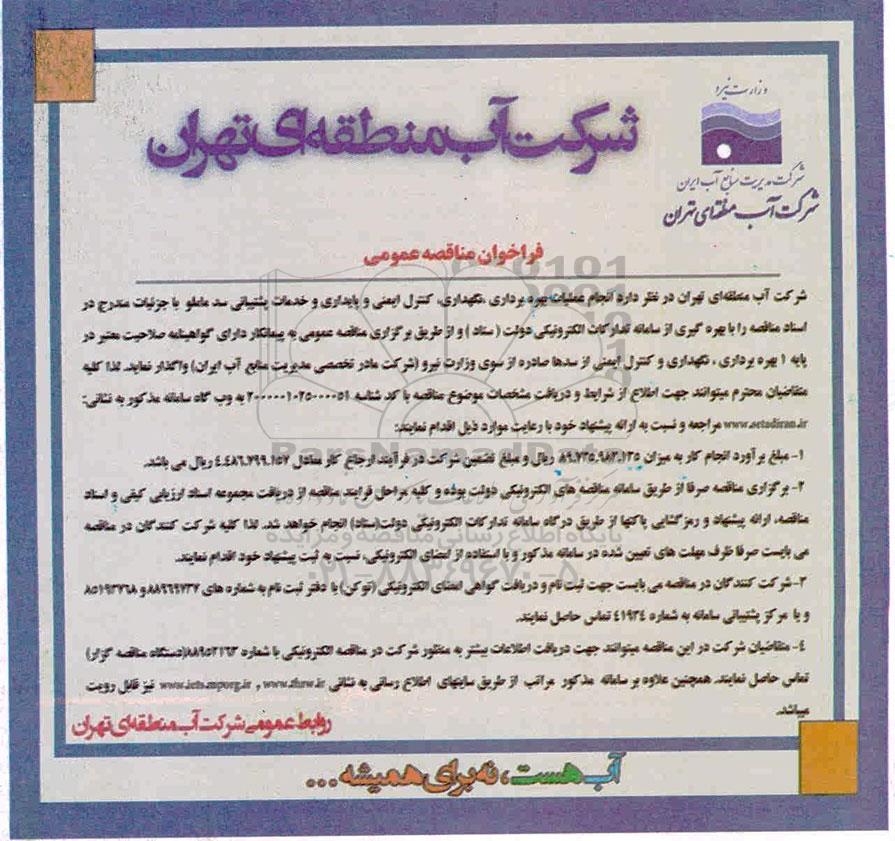 وزارت نیرو
شرکت مدیریت منابع آب ایران
شرکت آب منطقه‌ای تهران
شرکت آب منطقه‌ای تهران
فراخوان مناقصه عمومی
شرکت آب منطقه‌ای تهران در نظر دارد انجام عملیات بهره برداری ،نگهداری، کنترل ایمنی و پایداری و خدمات پشتیبانی سد ماملو با جزئیات مندرج در
اسناد مناقصه را با بهره گیری از سامانه تدارکات الکترونیکی دولت ( ستاد ) و از طریق برگزاری مناقصه عمومی به پیمانکار دارای گواهینامه صلاحیت معتبر در
پایه ۱ بهره برداری ، نگهداری و کنترل ایمنی از سدها صادره از سوی وزارت نیرو (شرکت مادر تخصصی مدیریت منابع آب ایران) واگذار نماید. لذا کلیه
متقاضیان محترم میتوانند جهت اطلاع از شرایط و دریافت مشخصات موضوع مناقصه با کد شناسه ۲۰۰۰۰۰۱۰۲۵۰۰۰۰۵۱ به وب گاه سامانه مذکور به نشانی:
www.setadiran.ir مراجعه و نسبت به ارائه پیشنهاد خود با رعایت موارد ذیل اقدام نمایند:
۱- مبلغ برآورد انجام کار به میزان ۸۹.۷۳۵.۹۸۳.۱۳۵ ریال و مبلغ تضمین شرکت در فرآیند ارجاع کار معادل ۴.۴۸۶.۷۹۹.۱۵۷ ریال می باشد.
۲- برگزاری مناقصه صرفا از طریق سامانه مناقصه های الکترونیکی دولت بوده و کلیه مراحل فرایند مناقصه از دریافت مجموعه اسناد ارزیابی کیفی و اسناد
مناقصه، ارائه پیشنهاد و رمزگشایی پاکتها از طریق درگاه سامانه تدارکات الکترونیکی دولت(ستاد) انجام خواهد شد. لذا کلیه شرکت کنندگان در مناقصه
می بایست صرفا ظرف مهلت های تعیین شده در سامانه مذکور و با استفاده از امضای الکترونیکی، نسبت به ثبت پیشنهاد خود اقدام نمایند.
۳-شرکت کنندگان در مناقصه می بایست جهت ثبت نام و دریافت گواهی امضای الکترونیکی (توکن) با دفتر ثبت نام به شماره های ۸۸۹۶۹۷۳۷ و ۸۵۱۹۳۷۶۸
و یا مرکز پشتیبانی سامانه به شماره ۴۱۹۳۴ تماس حاصل نمایند.
۴- متقاضیان شرکت در این مناقصه میتوانند جهت دریافت اطلاعات بیشتر به منظور شرکت در مناقصه الکترونیکی با شماره ۸۸۹۵۳۱۶۳(دستگاه مناقصه گزار)
تماس حاصل نمایند. همچنین علاوه بر سامانه مذکور مراتب از طریق سایتهای اطلاع رسانی به نشانی www.thrw.ir , www.iets.mporg.ir نیز قابل رویت
میباشد.
روابط عمومی شرکت آب منطقه‌ای تهران
آب هست، نه برای همیشه...
ParsNamadData
پایگاه اطلاع رسانی مناقصه و مزایده
۰۲۱-۸۸۳۴۹۶۷۰-۵